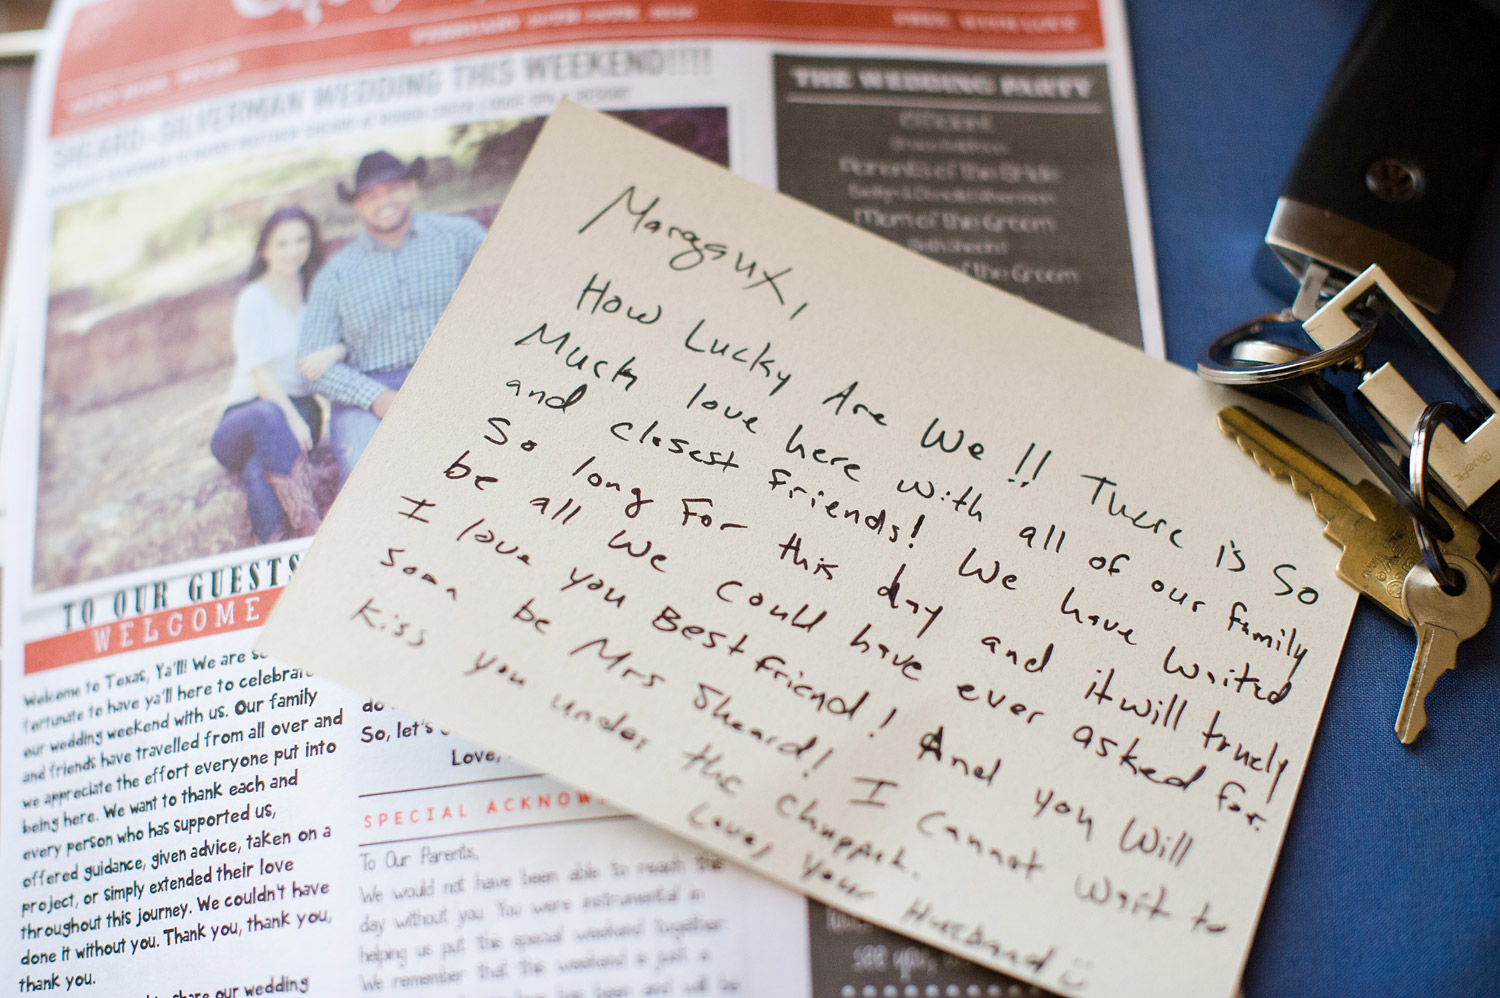 FEBRUARY
SHEARD-SILVERMAN WEDDING THIS WEEKEND!!!!
THE WEDDING PARTY
Parents of the Bride
Mom of the Groom
of the Groom
TO OUR GUESTS
WELCOME
Welcome to Texas, Ya'll! We are so
fortunate to have ya'll here to celebrate
our wedding weekend with us. Our family
and friends have travelled from all over and
we appreciate the effort everyone put into
being here. We want to thank each and
every person who has supported us,
offered guidance, given advice, taken on a
project, or simply extended their love
throughout this journey. We couldn't have
done it without you. Thank you, thank you,
thank you.
share our wedding
do
So, let's
Love,
SPECIAL ACKNOW
To Our Parents,
We would not have been able to reach this
day without you. You were instrumental in
helping us put this special weekend together
We remember that this weekend is just a
has been and will be
see you,
Margaux,
How Lucky Are We!! There is So
Much love here with all of our family
and closest friends! We have waited
So long For this day and it will truely
be all We could have ever asked for.
I love you Best friend! And you Will
soon be Mrs Sheard! I Cannot Wait to
Kiss you under the chuppah.
Love, your Husband
BlueFit